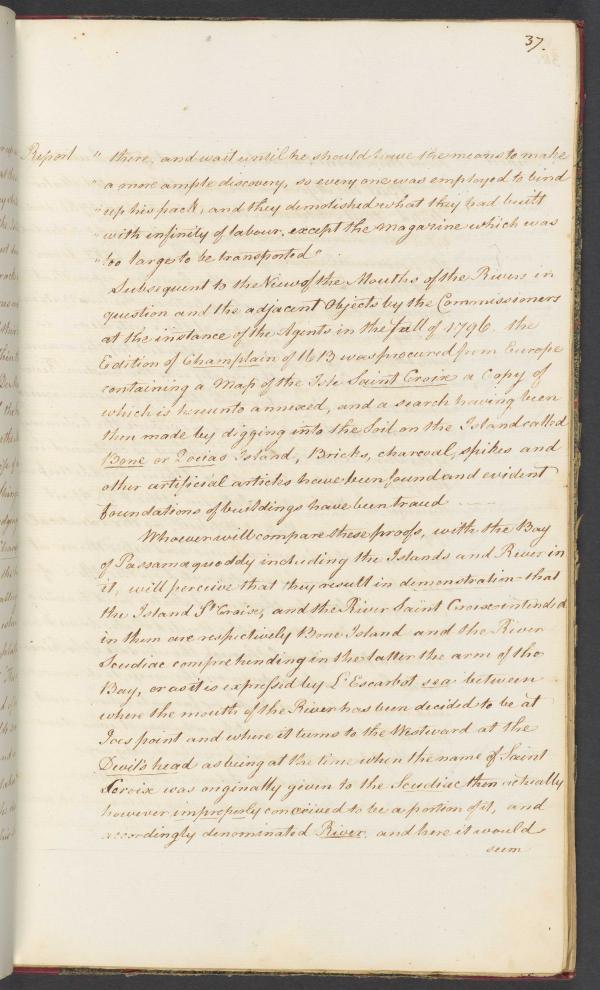 37.
Report " there, and wait until he should have the means to make
" a more ample discovery, so every one was employed to bind
" up his pack, and they demolished what they had built
" with infinity of labour, except the magazine which was
" too large to be transported"
Subsequent to the View of the Mouths of the Rivers in
question and the adjacent Objects by the Commissioners
at the instance of the Agents in the fall of 1796. the
Edition of Champlain of 1613 was procured from Europe
containing a Map of the Isle Saint Croix a Copy of
which is hereunto annexed, and a search having been
then made by digging into the Soil on the Island called
Bone or Docias Island, Bricks, charcoal, spikes and
other artificial articles have been found and evident
foundations of buildings have been traced
Whoever will compare these proofs, with the Bay
of Passamaquoddy including the Islands and River in
it, will perceive that they result in demonstration that
the Island St Croix, and the River Saint Croix intended
in them are respectively Bone Island and the River
Scudiac comprehending in the latter the arm of the
Bay, or as it is expressed by L'Escarbot sea between
where the mouth of the River has been decided to be at
Joes point and where it turns to the Westward at the
Devil's head as being at the time when the name of Saint
Croix was originally given to the Scudiac then actually
however improperly conceived to be a portion of it, and
accordingly denominated River, and here it would
seem